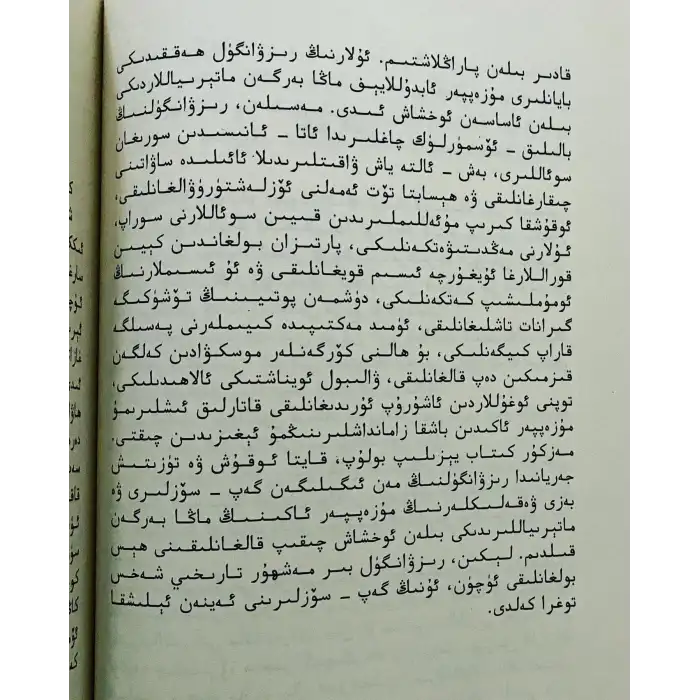 قادىر بىلەن پاراڭلاشتىم. ئۇلارنىڭ رىزۋانگۈل ھەققىدىكى
بايانلىرى مۇزەپپەر ئابدۇللايېف ماڭا بەرگەن ماتېرىياللاردىكى
بىلەن ئاساسەن ئوخشاش ئىدى. مەسىلەن، رىزۋانگۈلنىڭ
بالىلىق – ئۆسمۈرلۈك چاغلىرىدا ئاتا – ئانىسىدىن سورىغان
سوئاللىرى، بەش – ئالتە ياش ۋاقىتلىرىدىلا ئائىلىدە ساۋاتىنى
چىقارغانلىقى ۋە ھېسابتا تۆت ئەمەلنى ئۆزلەشتۈرۈۋالغانلىقى،
ئوقۇشقا كىرىپ مۇئەللىملىرىدىن قىيىن سوئاللارنى سوراپ،
ئۇلارنى مەڭدىتىۋەتكەنلىكى، پارتىزان بولغاندىن كېيىن
قوراللارغا ئۇيغۇرچە ئىسىم قويغانلىقى ۋە ئۇ ئىسىملارنىڭ
ئومۇملىشىپ كەتكەنلىكى، دۈشمەن پوتىيىنىڭ تۆشۈكىگە
گىرانات تاشلىغانلىقى، ئۈمىد مەكتىپىدە كىيىملەرنى پەسىلگە
قاراپ كىيگەنلىكى، بۇ ھالنى كۆرگەنلەر موسكۋادىن كەلگەن
قىزمىكىن دەپ قالغانلىقى، ۋالىبول ئويناشتىكى ئالاھىدىلىكى،
توپنى ئوغۇللاردىن ئاشۇرۇپ ئۇرىدىغانلىقى قاتارلىق ئىشلىرىمۇ
مۇزەپپەر ئاكىدىن باشقا زامانداشلىرىنىڭمۇ ئېغىزىدىن چىقتى.
مەزكۇر كىتاب يېزىلىپ بولۇپ، قايتا ئوقۇش ۋە تۈزىتىش
جەريانىدا رىزۋانگۈلنىڭ مەن ئىگىلىگەن گەپ – سۆزلىرى ۋە
بەزى ۋەقەلىكلەرنىڭ مۇزەپپەر ئاكىنىڭ ماڭا بەرگەن
ماتېرىياللىرىدىكى بىلەن ئوخشاش چىقىپ قالغانلىقىنى ھېس
قىلدىم. لېكىن، رىزۋانگۈل بىر مەشھۇر تارىخىي شەخس
بولغانلىقى ئۈچۈن، ئۇنىڭ گەپ – سۆزلىرىنى ئەينەن ئېلىشقا
توغرا كەلدى.